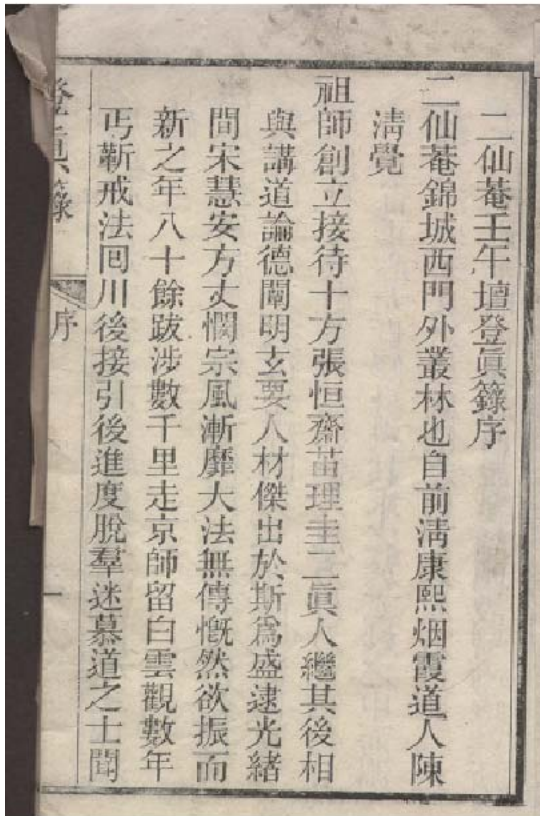 二仙菴壬午壇登眞籙序
二仙菴錦城西門外叢林也自前淸康熙烟霞道人陳
淸覺
祖師創立接待十方張恒齋苗理圭二眞人繼其後相
與講道論德闡明玄要人材傑出於斯爲盛逮光緒
間宋慧安方丈憫宗風漸靡大法無傳慨然欲振而
新之年八十餘跋涉數千里走京師留白雲觀數年
丐靳戒法囘川後接引後進度脫羣迷慕道之士聞
登眞籙
序